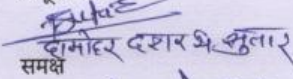 दामोदर दशरथ सुतार
समक्ष